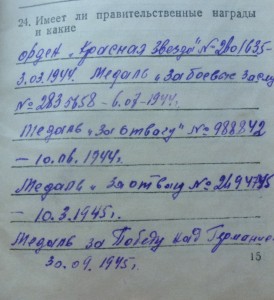 24. Имеет ли правительственные награды
и какие
орден „Красная Звезда" №
3.03.1944. Медаль „За боевые заслу
№ 2835658 - 6.07-1944г.
Медаль „За отвагу" № 988842
- 10.08.1944г.
Медаль „За отвагу №
- 10.3.1945г.
Медаль за Победу над Германие
30.09.1945г.
15